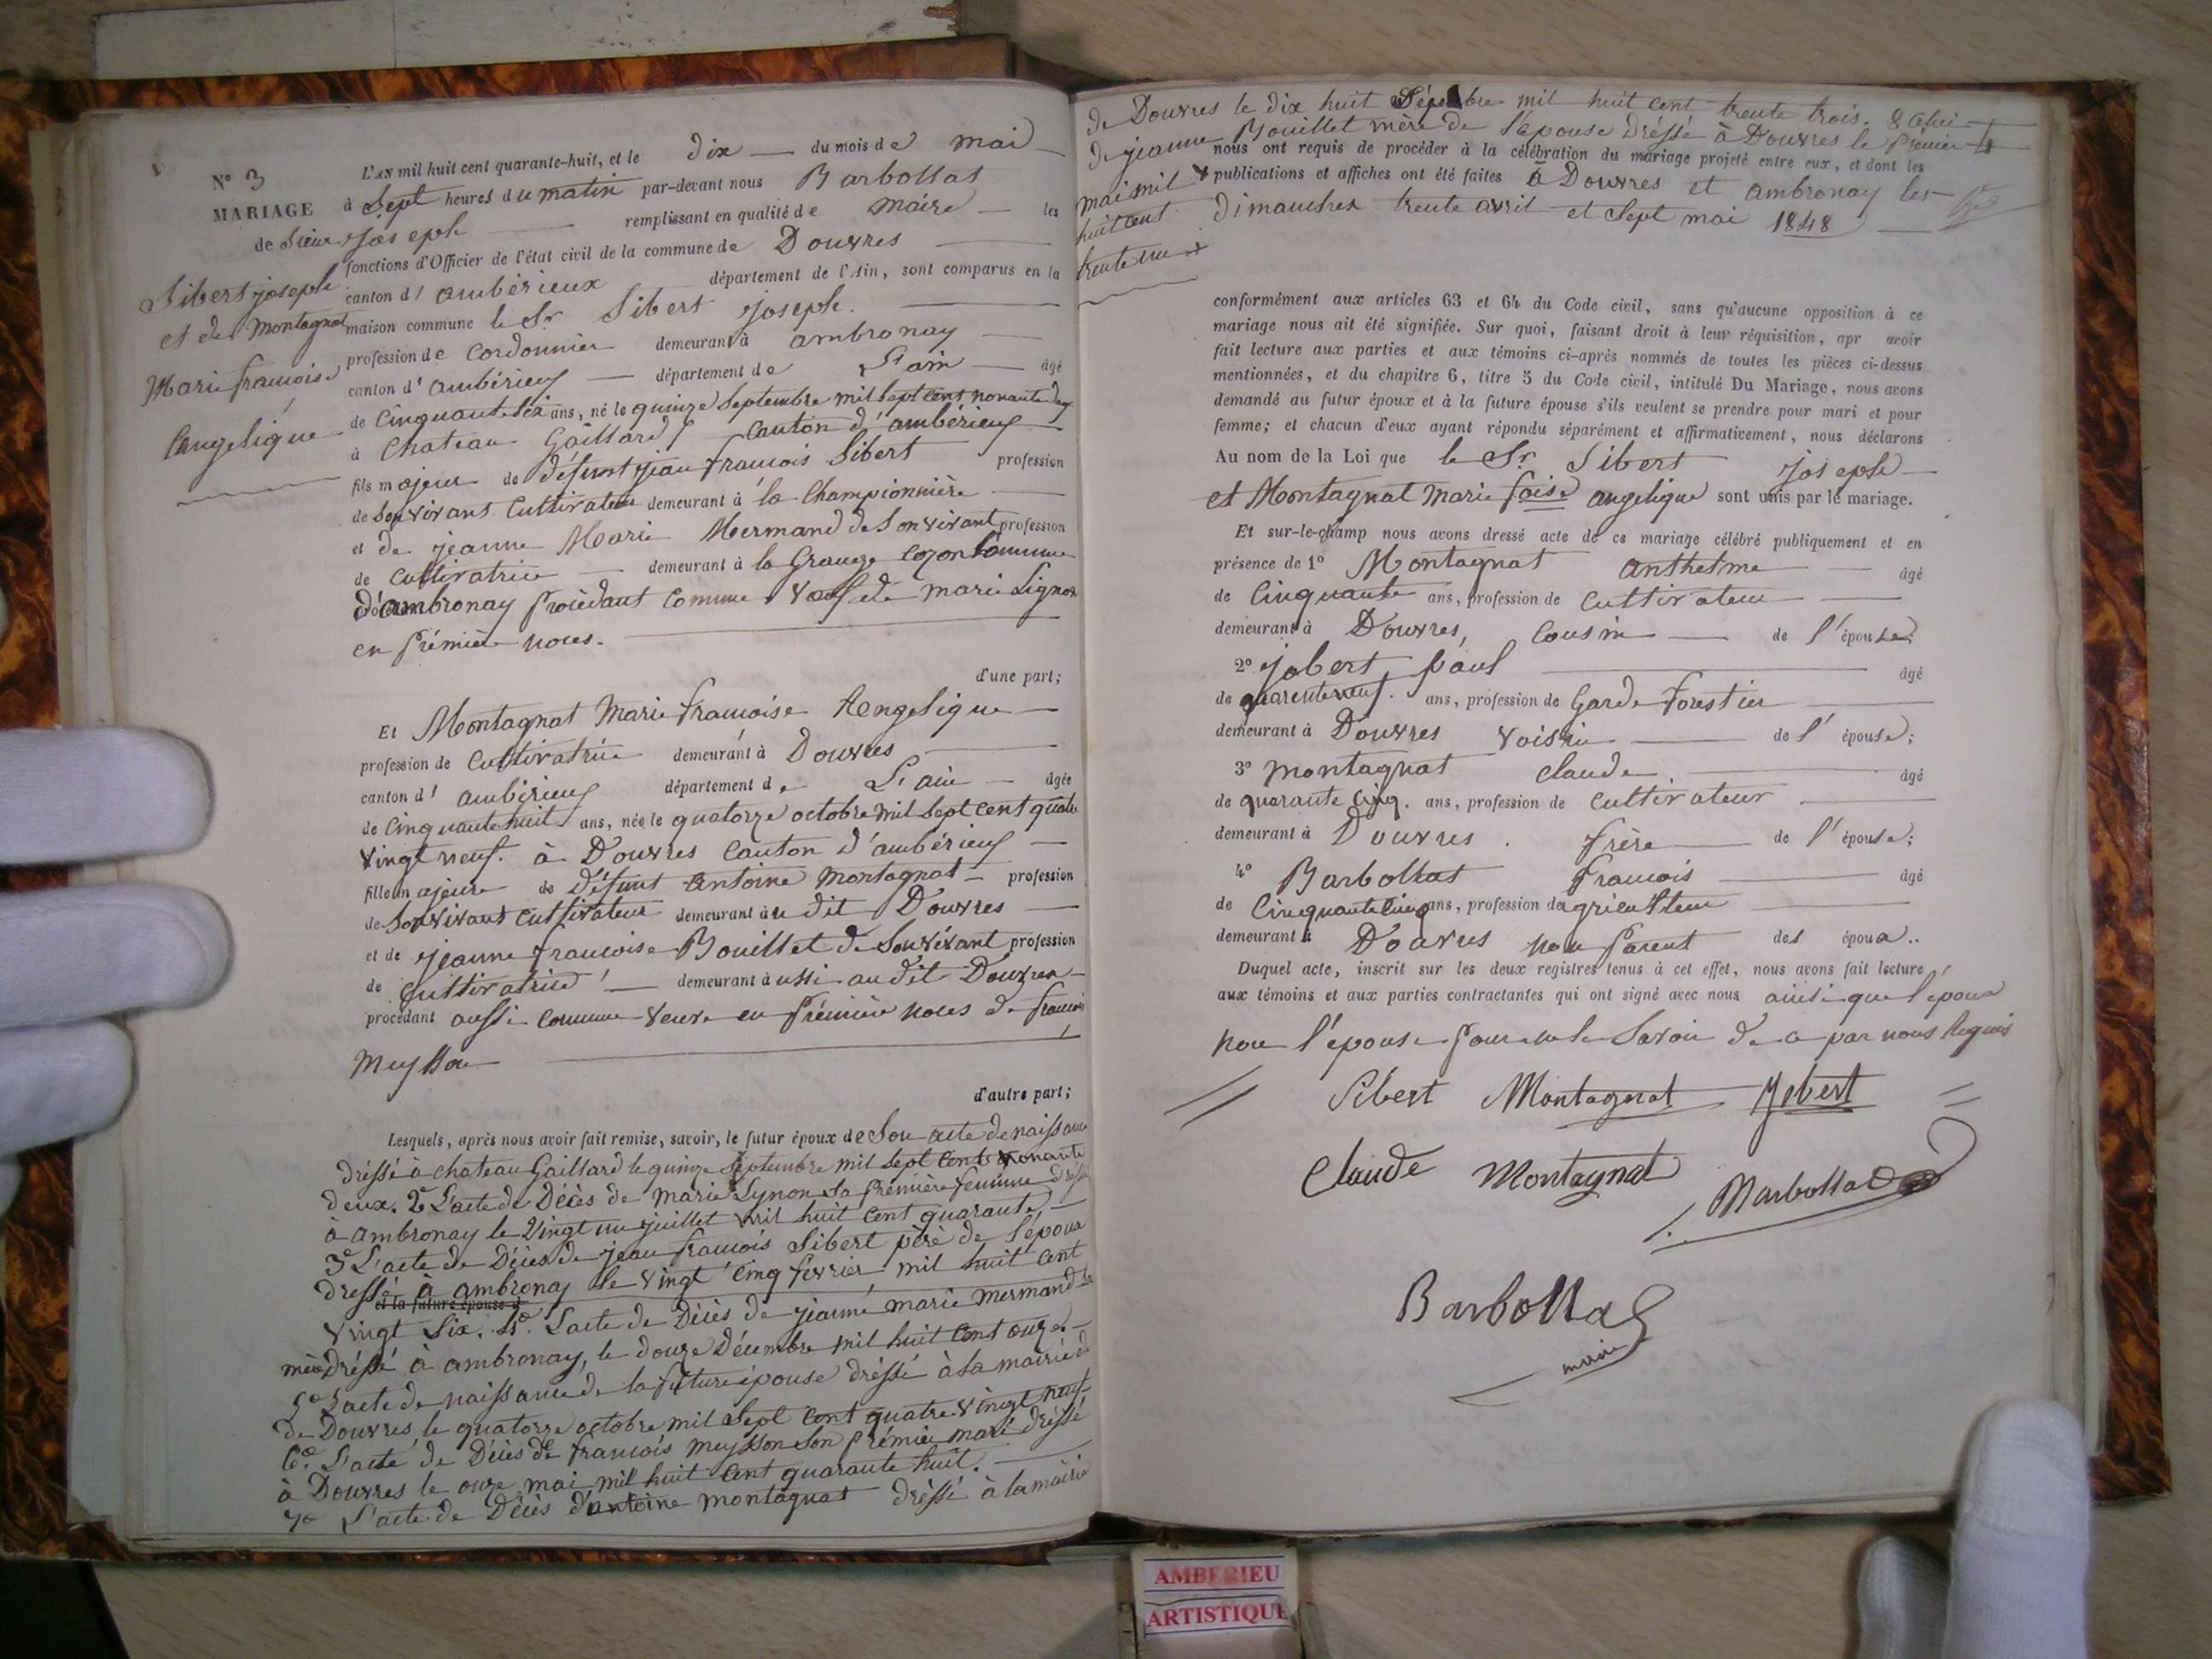 N° 3
MARIAGE
de Sieur
Sibert joseph
et de Montagnat
Marie francoise
Angelique
L'AN mil huit cent quarante-huit, et le dix du mois de mai
à Sept heures du matin par-devant nous Barbollat
Joseph remplissant en qualité de Maire les
fonctions d'Officier de l'état civil de la commune de Douvres
canton d' ambérieux département de l'Ain, sont comparus en la
maison commune le Sr Sibert joseph.
profession de Cordonnier demeurant à ambronay
canton d' ambérieux département de L'ain âgé
de Cinquante Six ans, né le quinze Septembre mil Sept Cent nonante deux
à Chateau Gaillard Canton d'ambérieux
fils majeur de défunt jean francois Sibert profession
de Son vivant Cultivateur demeurant à la Championnière
et de jeanne Marie Mermand de Son vivant profession
de Cultivatrice demeurant à la Grange Cozon Commune
d'ambronay Procèdant Comme Veuf de marie Lignon
en Prémière noces.
d'une part;
Et Montagnat Marie francoise Angelique
profession de Cultivatrice demeurant à Douvres
canton d' ambérieux département de L'ain âgée
de Cinquante huit ans, née le quatorze octobre mil Sept Cent quatre
Vingt neuf. à Douvres Canton d'ambérieux
fille majeure de Défunt antoine Montagnat profession
de Son vivant Cultivateur demeurant au dit Douvres
et de jeanne francoise Bouillet de Son vivant profession
de Cultivatrice demeurant aussi au dit Douvres
procédant aussi Comme Veuve en Prémière noces de francois
Meysson
d'autre part;
Lesquels, après nous avoir fait remise, savoir, le futur époux de Son acte de naissance
dréssé à chateau Gaillard le quinze Septembre mil Sept Cent nonante
deux. 2° L'acte de Décès de Marie Lynon Sa Prémière femme dréssé
à ambronay le Vingt un juillet mil huit Cent quarante.
3° L'acte de Décès de jean francois Sibert père de l'époux
dressé à ambronay le Vingt Cinq février mil huit Cent
et la future épouse d
Vingt Six. 4° L'acte de Décès de jeanne marie Mermand Sa
mère dréssé à ambronay, le douze Décembre mil huit Cent onze.
5° L'acte de naissance de la future épouse dréssé à la mairie de
de Douvres, le quatorze octobre mil Sept Cent quatre Vingt neuf.
6° L'acte de Décès de francois Meysson Son Prémier mari dréssé
à Douvres le onze mai mil huit Cent quarante huit.
7° L'acte de Décès d'antoine Montagnat dréssé à la mairie
de Douvres le dix huit Décembre mil huit Cent trente trois. 8° Celui
de jeanne Bouillet mère de l'épouse dréssé à Douvres le Prémier
mai mil
huit Cent
trente un
nous ont requis de procéder à la célébration du mariage projeté entre eux, et dont les
publications et affiches ont été faites à Douvres et ambronay les
Dimanches trente avril et Sept mai 1848
conformément aux articles 63 et 64 du Code civil, sans qu'aucune opposition à ce
mariage nous ait été signifiée. Sur quoi, faisant droit à leur réquisition, apr avoir
fait lecture aux parties et aux témoins ci-après nommés de toutes les pièces ci-dessus
mentionnées, et du chapitre 6, titre 5 du Code civil, intitulé Du Mariage, nous avons
demandé au futur époux et à la future épouse s'ils veulent se prendre pour mari et pour
femme; et chacun d'eux ayant répondu séparément et affirmativement, nous déclarons
Au nom de la Loi que le Sr Sibert joseph
et Montagnat Marie foise angelique sont unis par le mariage.
Et sur-le-champ nous avons dressé acte de ce mariage célébré publiquement et en
présence de 1° Montagnat anthelme âgé
de Cinquante ans, profession de Cultivateur
demeurant à Douvres, Cousin de l'épouse;
2° jobert Paul âgé
de quarente neuf. ans, profession de Garde Forestier
demeurant à Douvres Voisin de l' épouse;
3° Montagnat Claude. âgé
de quarante Cinq. ans, profession de Cultivateur
demeurant à Douvres. frère de l' épouse;
4° Barbollat francois âgé
de Cinquante Cinq ans, profession de agriculteur
demeurant à Douvres non Parent des époux..
Duquel acte, inscrit sur les deux registres tenus à cet effet, nous avons fait lecture
aux témoins et aux parties contractantes qui ont signé avec nous ainsi que l'époux
non l'épouse Pour ne le Savoir de ce par nous Requis
Sibert Montagnat Jobert
Claude Montagnat Barbollat
Barbollat
maire
AMBERIEU
ARTISTIQUE